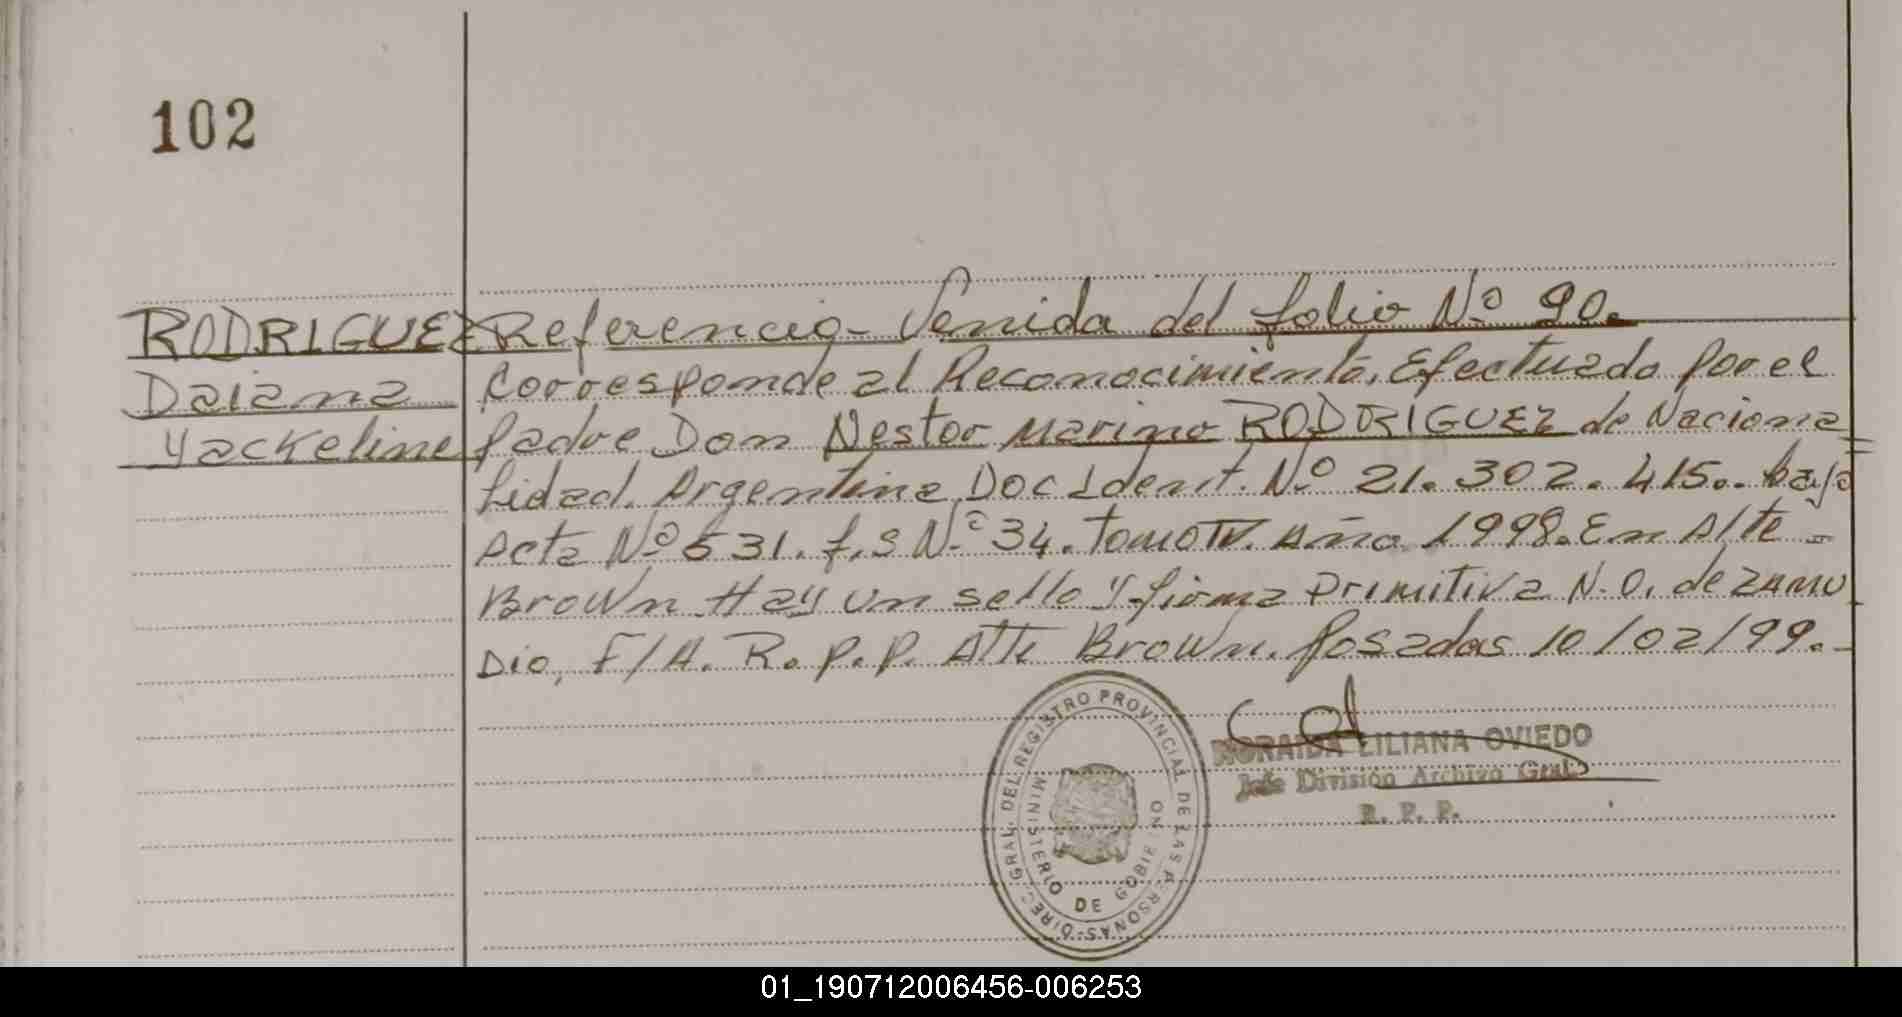 102
RODRIGUEZ
Daiana
Yackeline
Referencia - Venida del folio Nº 90.
Corresponde al Reconocimiento, Efectuado por el
padre Don Nestor Marino RODRIGUEZ de Naciona
lidad. Argentina Doc Ident. Nº 21.302.415.. bajo
Acta Nº 531. f,s Nº 34. tomo IV. Año 1998. En Alte -
Brown. Hay un sello y firma Primitiva N. O. de ZAMU
DIO, F/A. R. p. p. Alte Brown. Posadas 10/02/99.-
DIREC. GRAL. DEL REGISTRO PROVINCIAL DE LAS PERSONAS
MINISTERIO DE GOBIERNO
NORAIDA LILIANA OVIEDO
Jefe División Archivo Gral.
R. P. P.
01_190712006456-006253